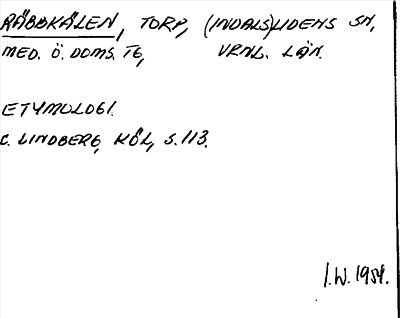 RÄBBKÄLEN, TORP, (INDALS)LIDENS SN,
MED. Ö. DOMS. TG, VRNL. LÄN.
ETYMOLOGI.
C. LINDBERG, KÖL, S. 113.
I.W. 1954.